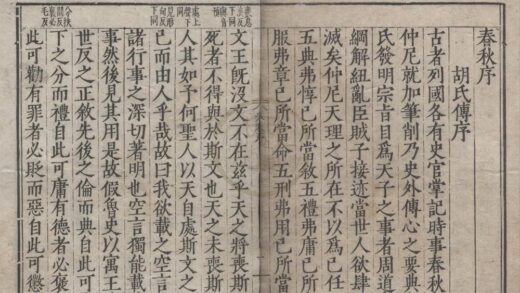 春秋序
胡氏傳序
古者列國各有史官掌記時事春秋
仲尼就加筆削乃史外傳心之要典
氏發明宗旨目爲天子之事者周道
綱解紐亂臣賊子接迹當世人欲肆
滅矣仲尼天理之所在不以爲己任
五典弗惇己所當敘五禮弗庸己所
服弗章己所當命五刑弗用己所當
文王旣沒文不在茲乎天之將喪斯
死者不得與於斯文也天之未喪斯
人其如予何聖人以天自處斯文之
己而由人乎哉故曰我欲載之空言
諸行事之深切著明也空言獨能載
事然後見其用是故假魯史以寓王
世反之正敘先後之倫而典自此可
下之分而禮自此可庸有德者必褒
此可勸有罪者必貶而惡自此可懲